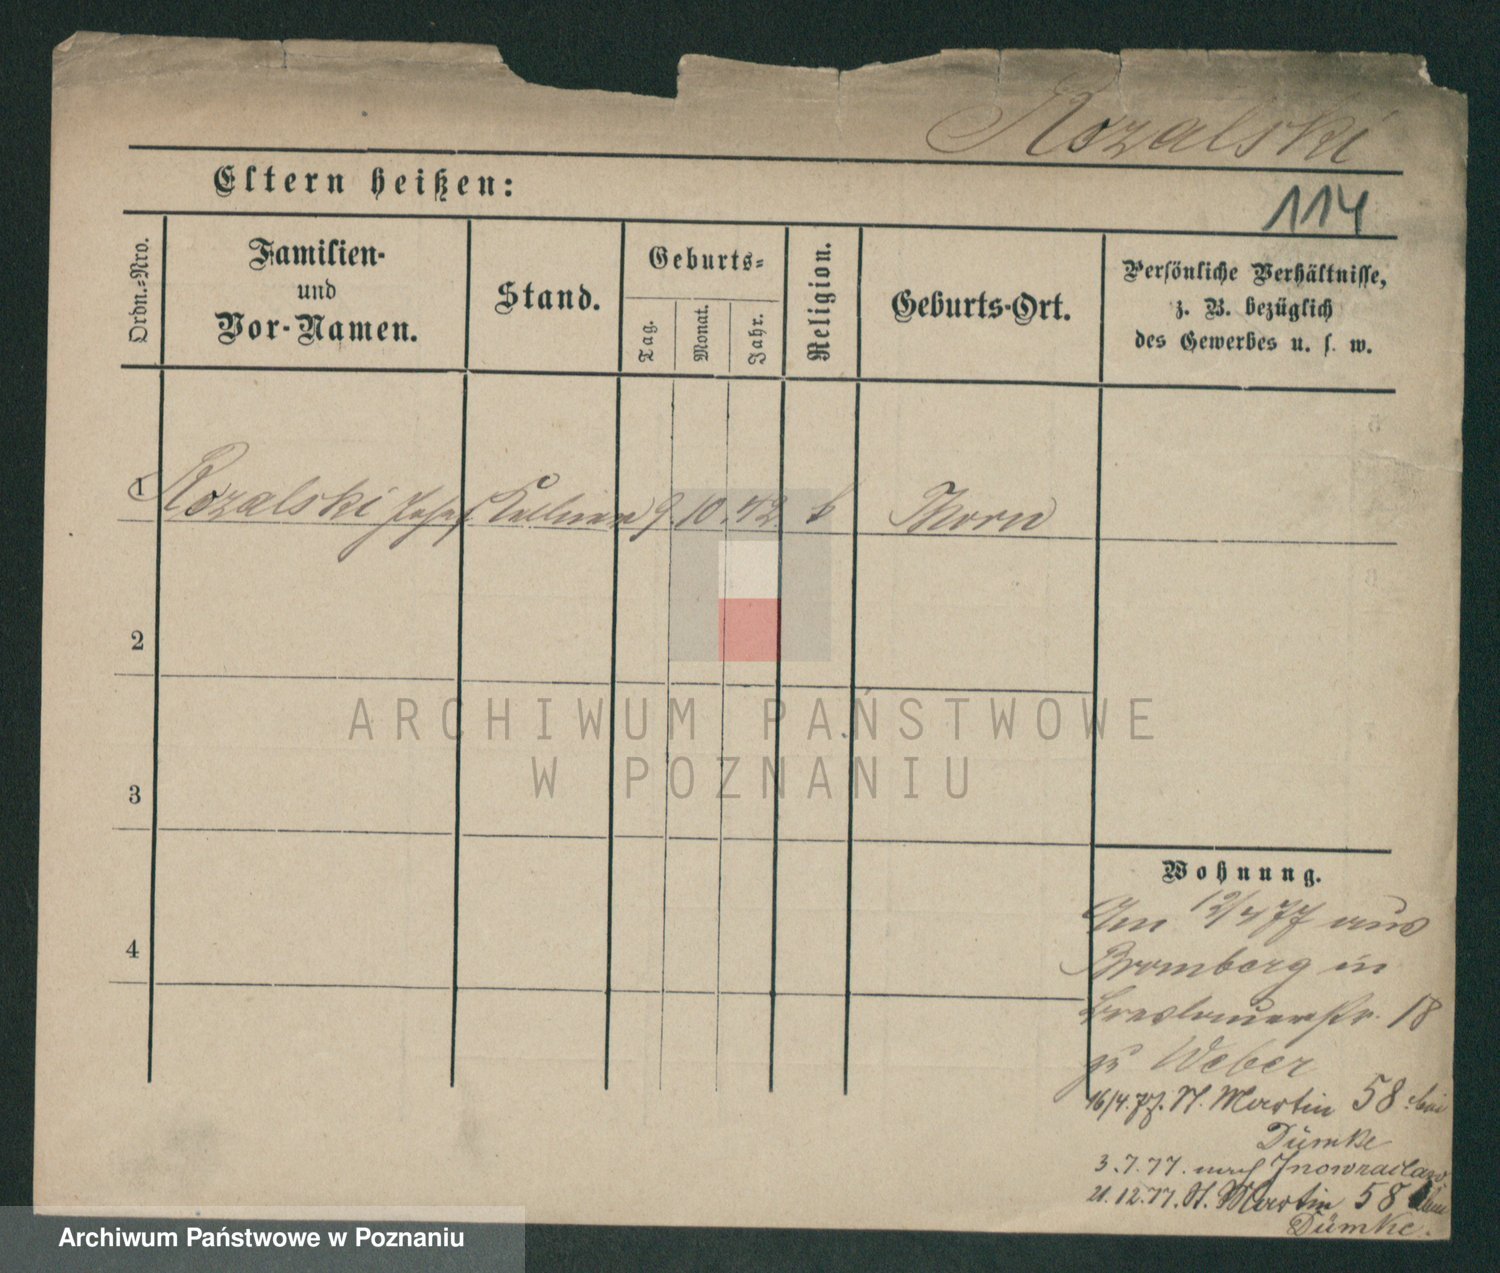 Rozalski
114
Eltern heißen:
Ordn.-Nro.
Familien-
und
Vor-Namen.
Stand.
Geburts-
Tag.
Monat.
Jahr.
Religion.
Geburts-Ort.
Persönliche Verhältnisse,
z. B. bezüglich
des Gewerbes u. s. w.
1 Rozalski Josef Kellner 9. 10. 42. k Thorn
2
3
4
Wohnung.
Am 12/4 77 aus
Bromberg in
Breslauerstr. 18
zu Weber
16/4. 77. St. Martin 58 bei
Dümke
3.7.77. nach Inowraclaw
21.12.77. St. Martin 58 bei
Dümke.
ARCHIWUM PAŃSTWOWE
W POZNANIU
Archiwum Państwowe w Poznaniu